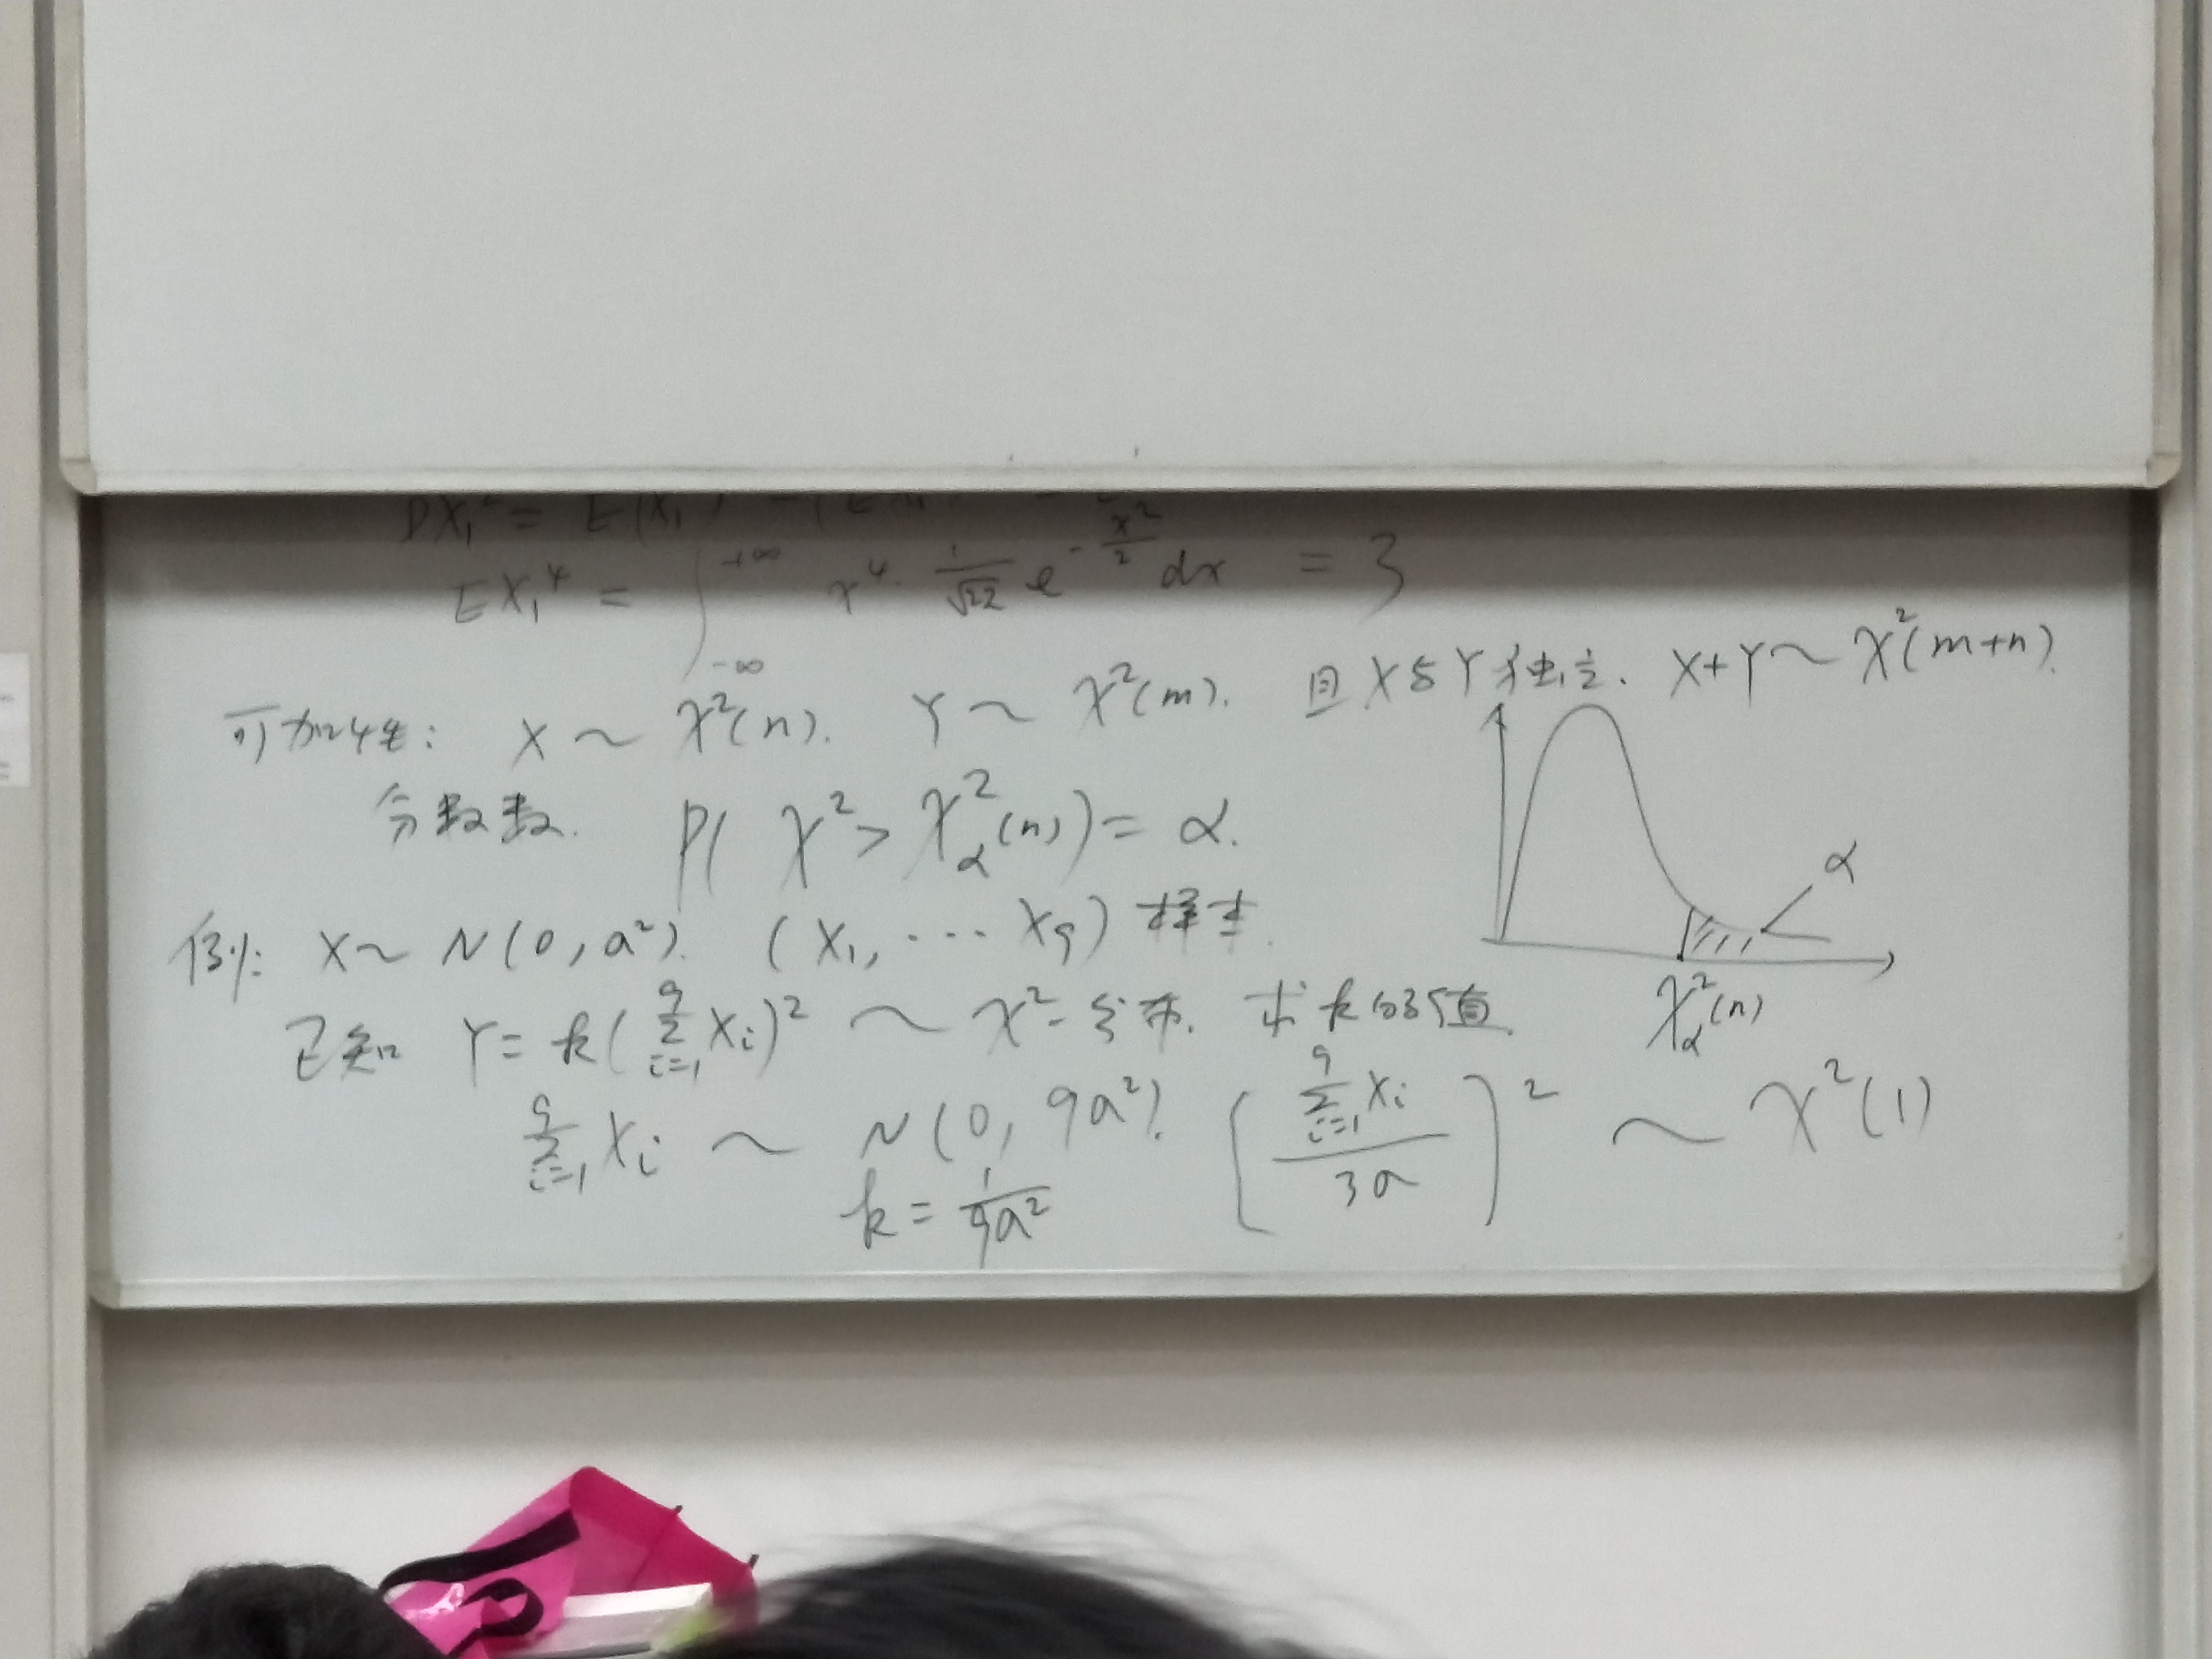 DX₁² = E(X₁
EX₁⁴ = ∫₋∞⁺∞ x⁴· 1/√2π e^(-x²/2) dx = 3
可加性: X ~ χ²(n). Y ~ χ²(m). 且X与Y独立. X+Y ~ χ²(m+n).
分数数. P( χ² > χ²_α(n)) = α.
α
例: X ~ N(0, a²). (X₁, ··· X₉) 样本.
χ²_α(n)
已知 Y = k(∑ᵢ₌₁⁹ Xᵢ)² ~ χ²-分布. 求k的值.
∑ᵢ₌₁⁹ Xᵢ ~ N(0, 9a²). (∑ᵢ₌₁⁹ Xᵢ / 3a)² ~ χ²(1)
k = 1/9a²